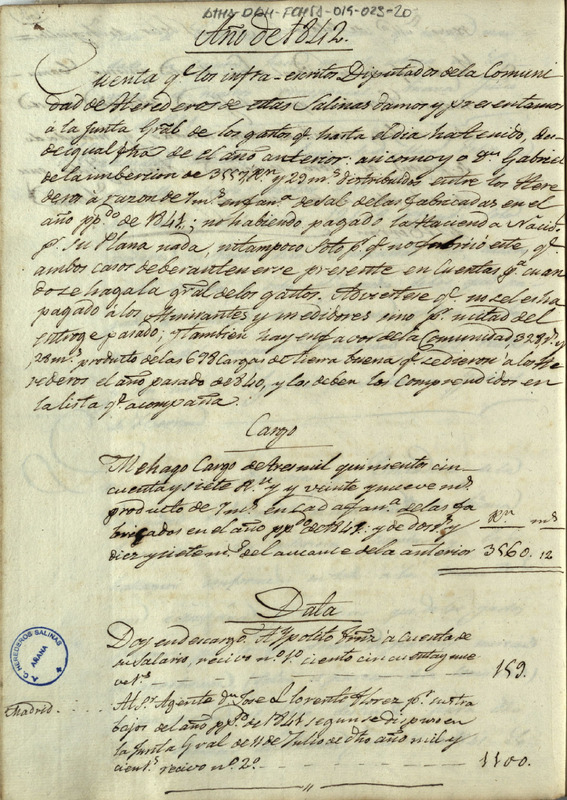 ATHA-DAH-FCHSA-015-023-20
Año de 1842.
Cuenta q.e los infra-escritos Diputados de la Comuni
dad de Herederos de estas Salinas damos y presentamos
a la Junta Gral de los gastos q.e hasta el dia ha tenido, des
de igual fha de el año anterior: asi como yo dn Gabriel
de la imbersion de 3557 Rs.n y 29 ms. distribuidos entre los Here
deros a razon de 7 ms. en fan.a de sal de las fabricadas en el
año pp.do de 1841; no habiendo pagado la Hacienda Nacio.
p.r su Plana nada, ni tampoco Soto p.r q.e no
ambos casos deberan tenerse presente en Cuentas p.a cuan
do se haga la gral de los gastos. Adviertese q.e no se les ha
pagado a los y medidores sino p.r mitad del
entroge pasado; y tambien hay en favor de la Comunidad 328 rs. y
28 ms. producto de las 698 Cargas de tierra buena q.e se dieron a los He
rederos el año pasado de 1840, y los deben los comprendidos en
la lista q.e acompaña.
Cargo
Me hago Cargo de tres mil quinientos cin
cuenta y siete Rs. y veinte y nueve ms.
producto de 7 ms. en cada fan.a de las fa
bricadas en el año pp.do de 1841: y de dos rs. y
diez y siete ms. del alcance de la anterior
Rs.n ms.
3560. 12
Data
Doy en descargo. A Ypolito Frnz a cuenta de
su Salario, recivo n.o 1.o ciento cincuenta y nue
ve rs. 159.
Madrid.
Al Sr. Agente dn Jose Llorente Florez p.r su tra
bajos del año pp.do de 1841 segun se dispuso en
la Junta Gral de 11 de Julio de dho año mil y
cien rs. recivo n.o 2.o 1100.
A.C. HEREDEROS SALINAS
AÑANA